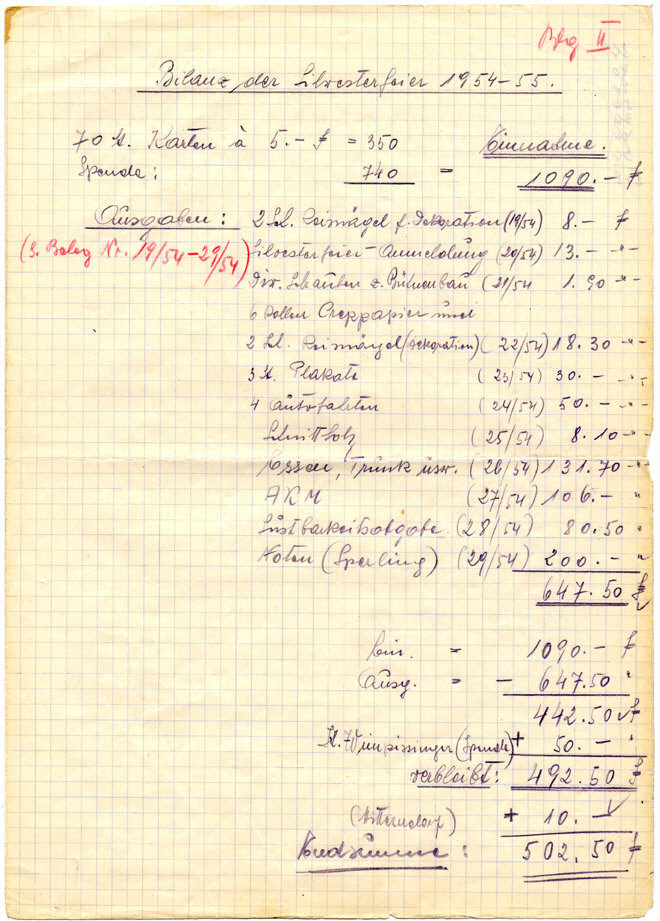 Blg II
Bilanz der Silvesterfeier 1954-55.
70 St. Karten à 5.- S = 350 Einnahme.
Spende: 740 = 1090.- S
Ausgaben: 2 Sch. Reisnägel f. Dekoration (19/54) 8.- S
(s. Beleg Nr. 19/54-29/54) Silvesterfeier-Anmeldung (20/54) 13.- "-
Div. Schrauben z. Bühnenbau (21/54 1.90 "-
6 Rollen Creppapier und
2 Sch. Reisnägel (Dekoration) (22/54) 18.30 "-
3 St. Plakate (23/54) 30.- "-
4 Autofahrten (24/54) 50.- "-
Schnittholz (25/54) 8.10 "-
Essen, Trunk usw. (26/54) 131.70 "-
AKM (27/54) 106.- "
Lustbarkeitsabgabe (28/54) 80.50 "
Noten (Sperling) (29/54) 200.- "
647.50 S
Ein. = 1090.- S
Ausg. = - 647.50 "
442.50 S
St. Wimpissinger (Spende) + 50.- "
verbleibt: 492.50 S
(Mitterndorf) + 10.-
Endsumme: 502.50 S